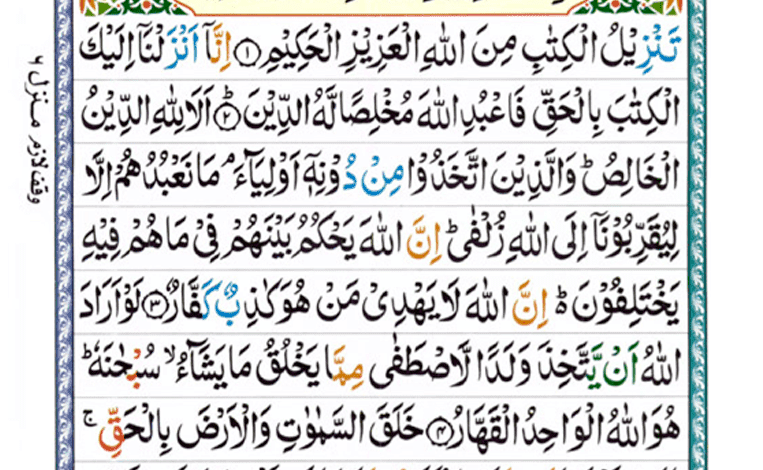 تَنْزِيْلُ الْكِتٰبِ مِنَ اللّٰهِ الْعَزِيْزِ الْحَكِيْمِ ۝١ اِنَّاۤ اَنْزَلْنَاۤ اِلَيْكَ
الْكِتٰبَ بِالْحَقِّ فَاعْبُدِ اللّٰهَ مُخْلِصًا لَّهُ الدِّيْنَ ۝٢ؕ اَلَا لِلّٰهِ الدِّيْنُ
الْخَالِصُ ؕ وَالَّذِيْنَ اتَّخَذُوْا مِنْ دُوْنِهٖۤ اَوْلِيَآءَ ۘ مَا نَعْبُدُهُمْ اِلَّا
لِيُقَرِّبُوْنَاۤ اِلَى اللّٰهِ زُلْفٰى ؕ اِنَّ اللّٰهَ يَحْكُمُ بَيْنَهُمْ فِيْ مَا هُمْ فِيْهِ
يَخْتَلِفُوْنَ ؕ۬ اِنَّ اللّٰهَ لَا يَهْدِيْ مَنْ هُوَ كٰذِبٌ كَفَّارٌ ۝٣ لَوْ اَرَادَ
اللّٰهُ اَنْ يَّتَّخِذَ وَلَدًا لَّاصْطَفٰى مِمَّا يَخْلُقُ مَا يَشَآءُ ۙ سُبْحٰنَهٗ ؕ
هُوَ اللّٰهُ الْوَاحِدُ الْقَهَّارُ ۝٤ خَلَقَ السَّمٰوٰتِ وَالْاَرْضَ بِالْحَقِّ ۚ
وقف لازم
منزل ٦